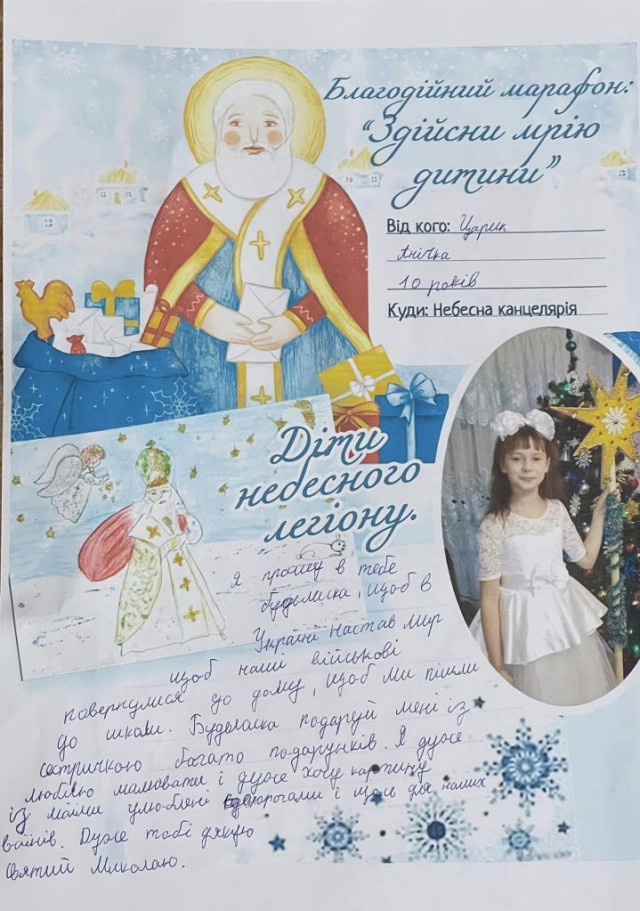 Благодійний марафон:
"Здійсни мрію
дитини"
Від кого: Царик
Анічка
10 років
Куди: Небесна канцелярія
Діти
небесного
легіону.
Я прошу в тебе
будьласка, щоб в
Україні настав мир
щоб наші військові
повернулися до дому, щоб ми пішли
до школи. Будьласка подаруй мені із
сестричкою багато подарунків. Я дуже
люблю малювати і дуже хочу картину
із моїми улюблені і щось для наших
воїнів. Дуже тобі дякую
Святий Миколаю.